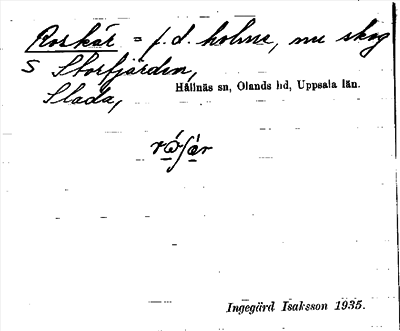 Roskär = f.d. holme, nu skog
S Storfjärden,
Slada, Hållnäs sn, Olands hd, Uppsala län.
Ingegärd Isaksson 1935.